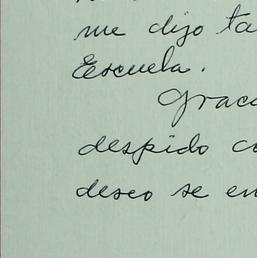 me dijo ta
Escuela.
Grac
despido co
deseo se en